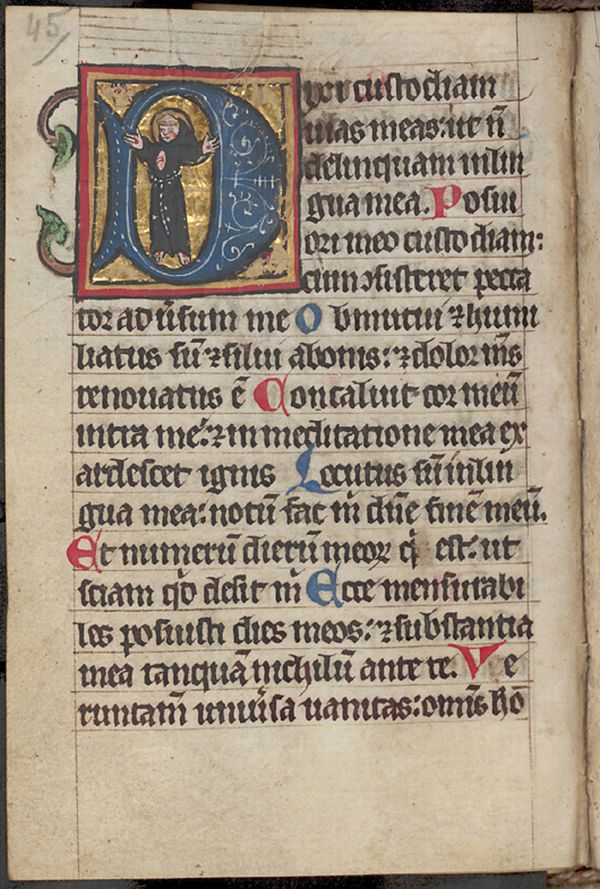 45
Dixi custodiam
uias meas: ut n̄
delinquam in lin
gua mea. Posui
ori meo custodiam:
cum ↄsisteret pecca
tor adūsum me Obmutui ⁊ humi
liatus sū ⁊ silui abonis: ⁊ dolor m̄s
renouatus ē Concaluit cor meū
intra me: ⁊ in meditatione mea ex
ardescet ignis Locutus sū in lin
gua mea: notū fac m̄ dn̄e finē meū.
Et numerū dierū meoꝝ q̄ est: ut
sciam qd̄ desit m̄ Ecce mensurabi
les posuisti dies meos: ⁊ substantia
mea tanquā nichilū ante te. Ve
runtam̄ uniūsa uanitas: omīs hō